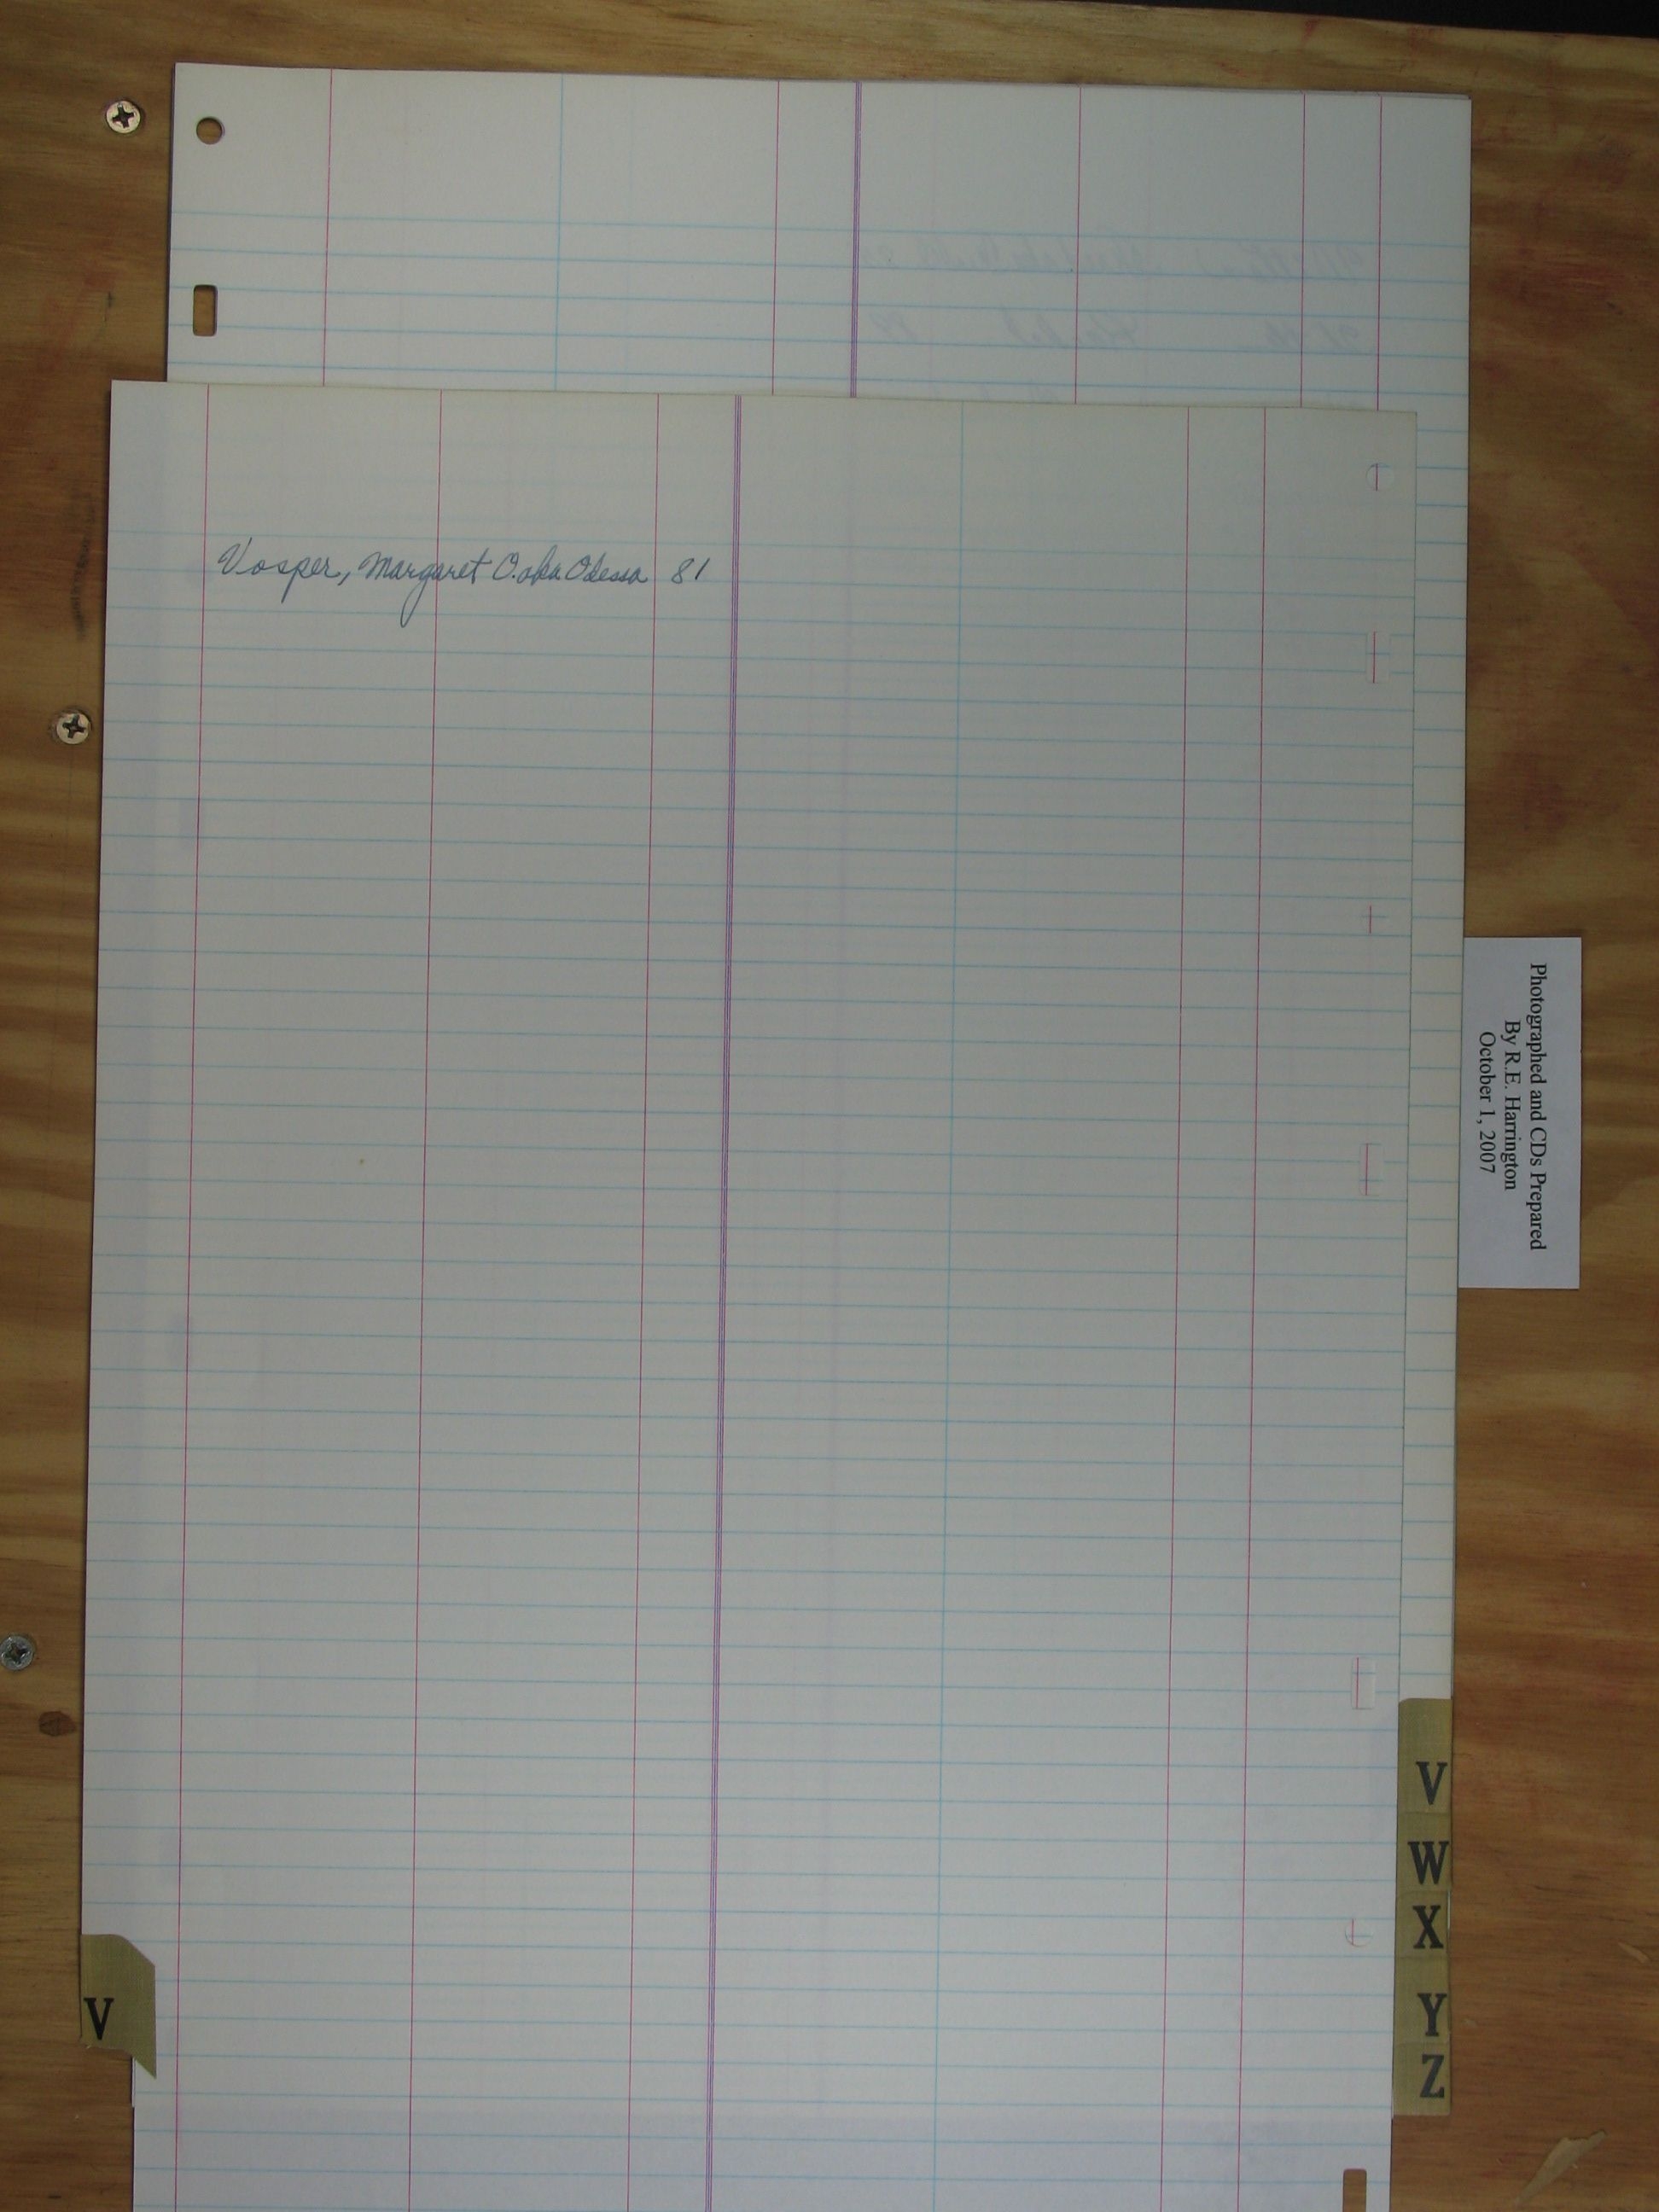 Vosper, Margaret O. aka Odessa 81
Photographed and CDs Prepared
By R.E. Harrington
October 1, 2007
V
W
X
Y
Z
V